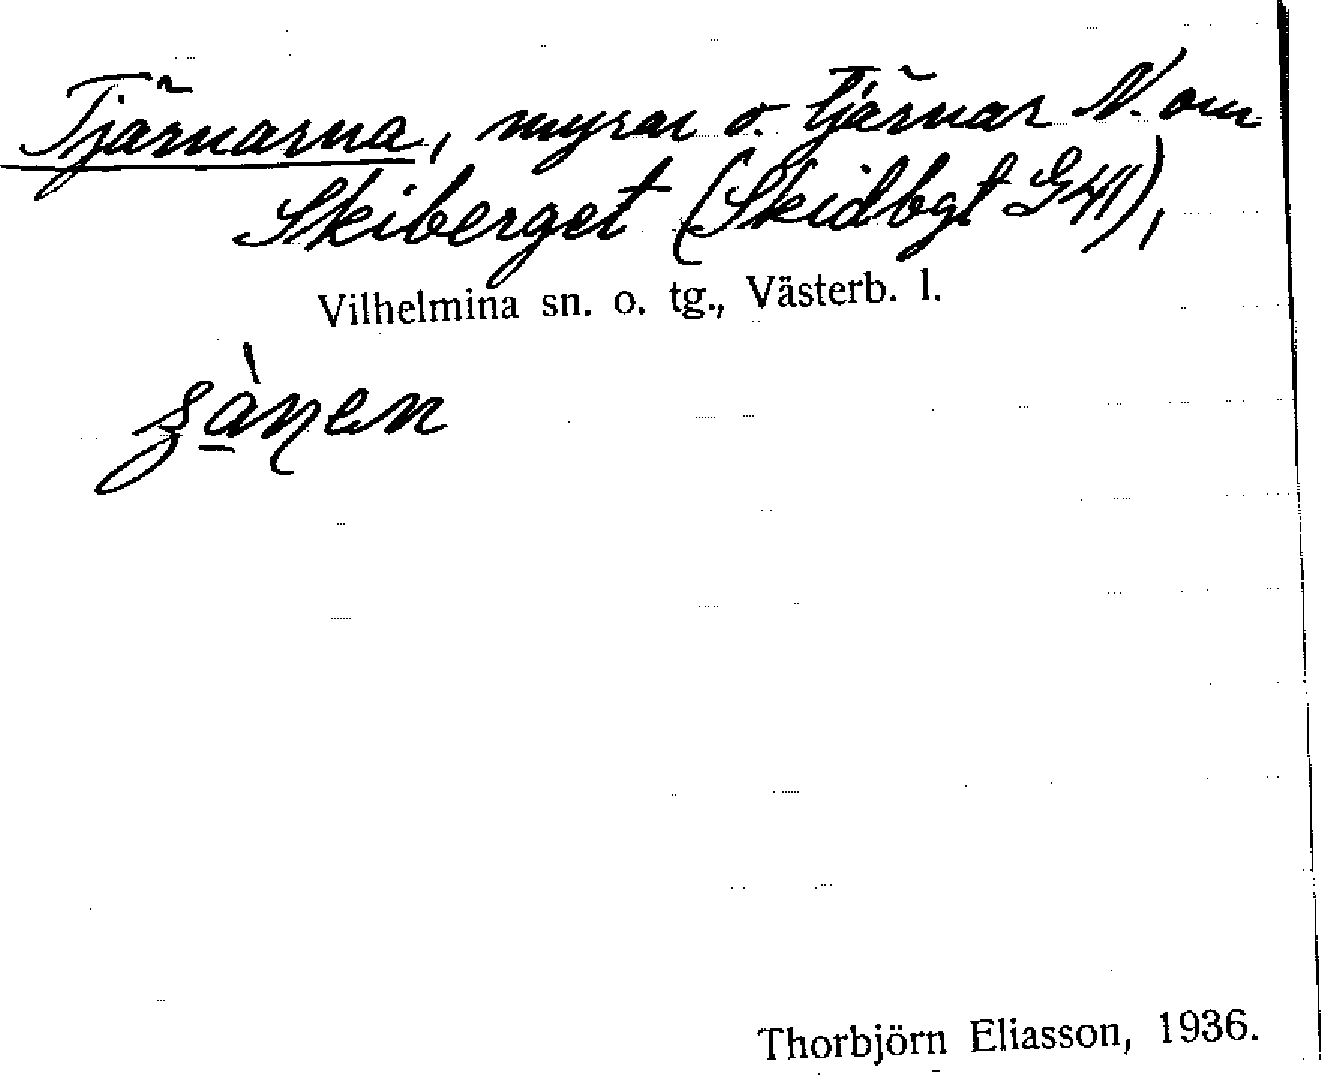 Tjärnarna, myrar o. tjärnar N. om
Skiberget (Skidbgt GK),
Vilhelmina sn. o. tg., Västerb. l.
Thorbjörn Eliasson, 1936.